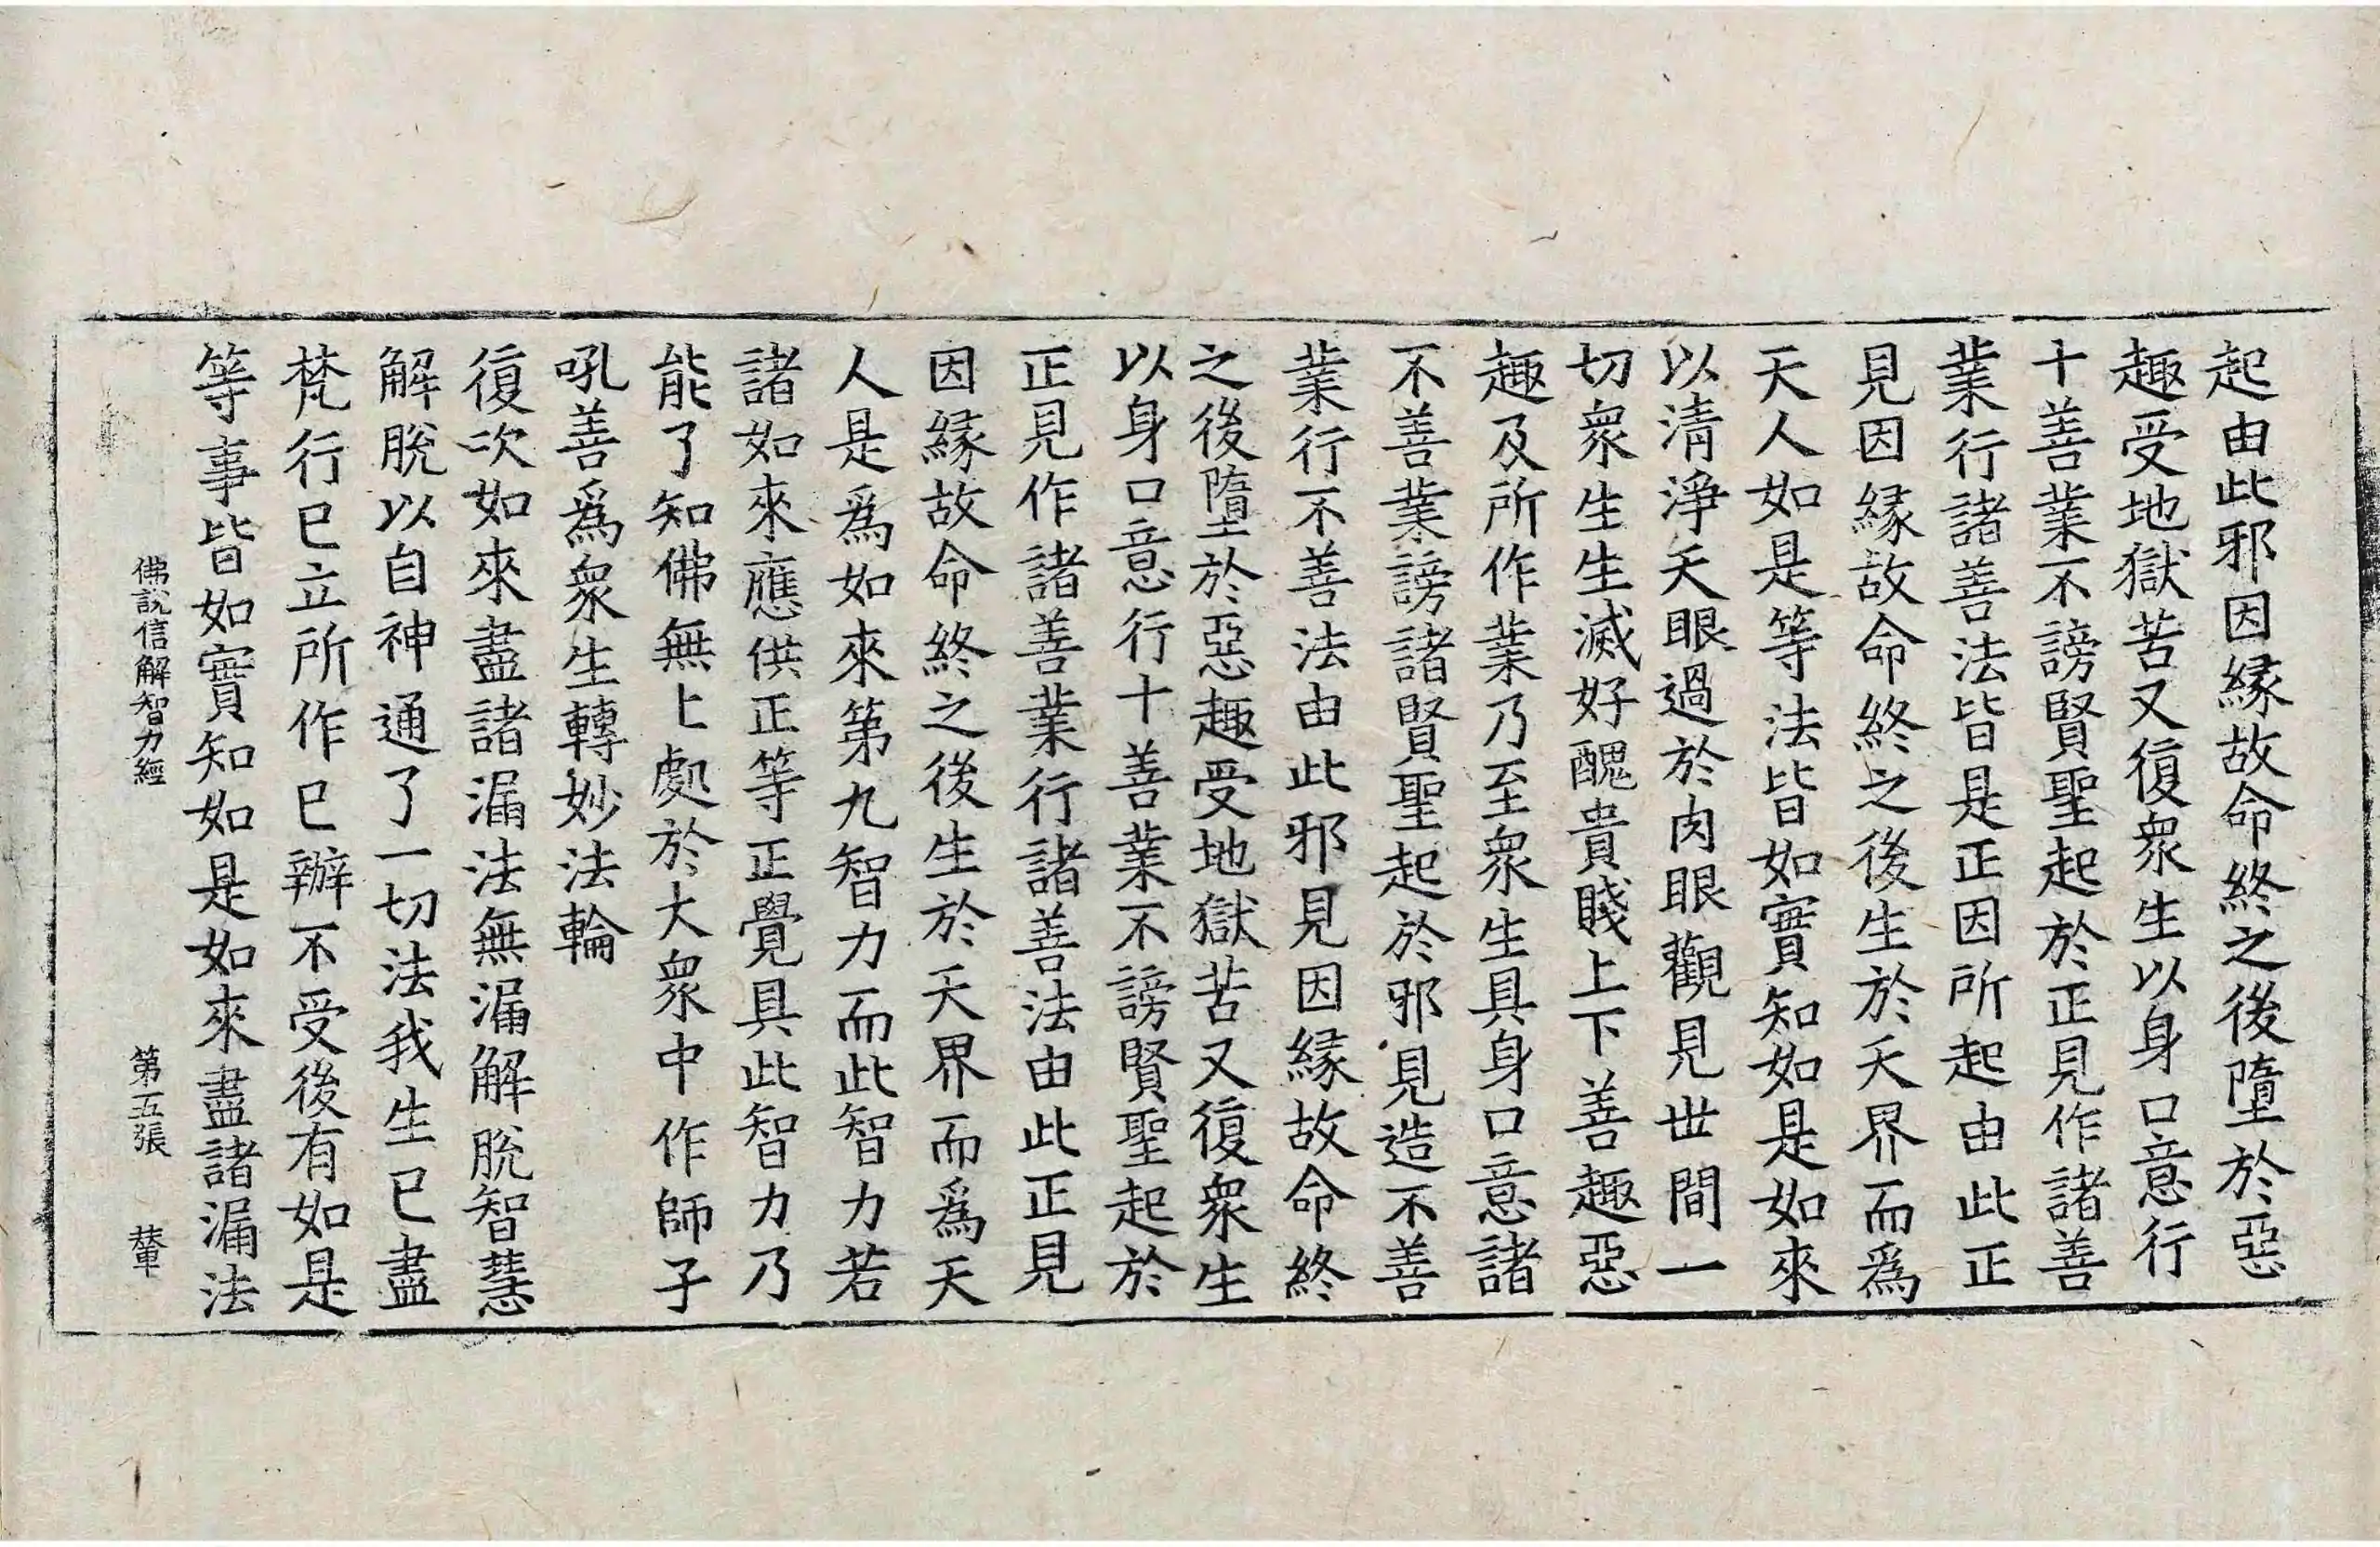 起由此邪因縁故命終之後墮於惡
趣受地獄苦又復衆生以身口意行
十善業不謗賢聖起於正見作諸善
業行諸善法皆是正因所起由此正
見因縁故命終之後生於天界而爲
天人如是等法皆如實知如是如來
以清淨天眼過於肉眼觀見世間一
切衆生生滅好醜貴賤上下善趣惡
趣及所作業乃至衆生具身口意諸
不善業謗諸賢聖起於邪見造不善
業行不善法由此邪見因縁故命終
之後墮於惡趣受地獄苦又復衆生
以身口意行十善業不謗賢聖起於
正見作諸善業行諸善法由此正見
因縁故命終之後生於天界而爲天
人是爲如來第九智力而此智力若
諸如來應供正等正覺具此智力乃
能了知佛無上處於大衆中作師子
吼善爲衆生轉妙法輪
復次如來盡諸漏法無漏解脫智慧
解脫以自神通了一切法我生已盡
梵行已立所作已辦不受後有如是
等事皆如實知如是如來盡諸漏法
佛說信解智力經 第五張 輦